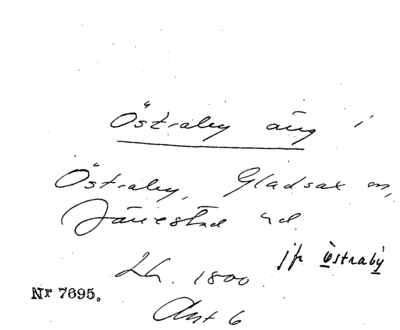 Östraby äng i
Östraby, Gladsax sn,
Järrestad hd.
jfr östraby
Lh. 1800
Nr 7695.
Akt 6